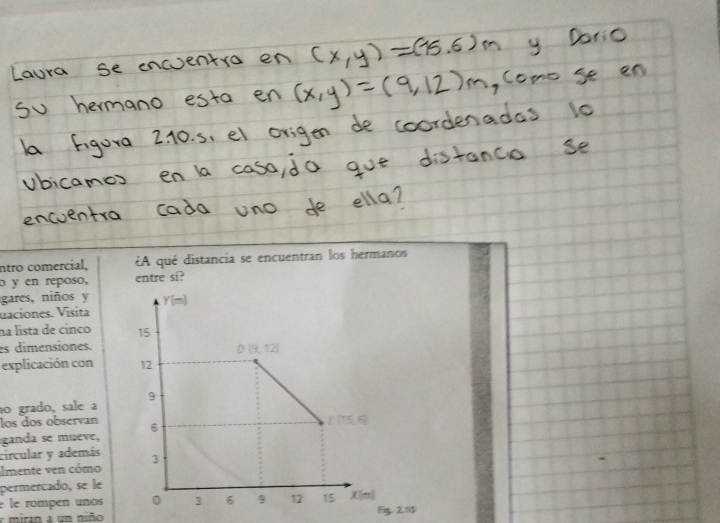 Laura se encuentra en (x,y) = (15.6)m y Dario
su hermano esta en (x,y) = (9,12)m, como se en
la figura 2.10.s. el origen de coordenadas lo
ubicamos en la casa, ¿a que distancia se
encuentra cada uno de ella?
ntro comercial,
o y en reposo,
gares, niños y
uaciones. Visita
na lista de cinco
es dimensiones.
explicación con
no grado, sale a
los dos observan
ganda se mueve,
circular y además
lmente ven cómo
permercado, se le
e le rompen unos
miran a un niño
¿A qué distancia se encuentran los hermanos
entre sí?
Y(m)
15
D (9, 12)
12
9
6
(15, 6)
3
0 3 6 9 12 15 X(m)